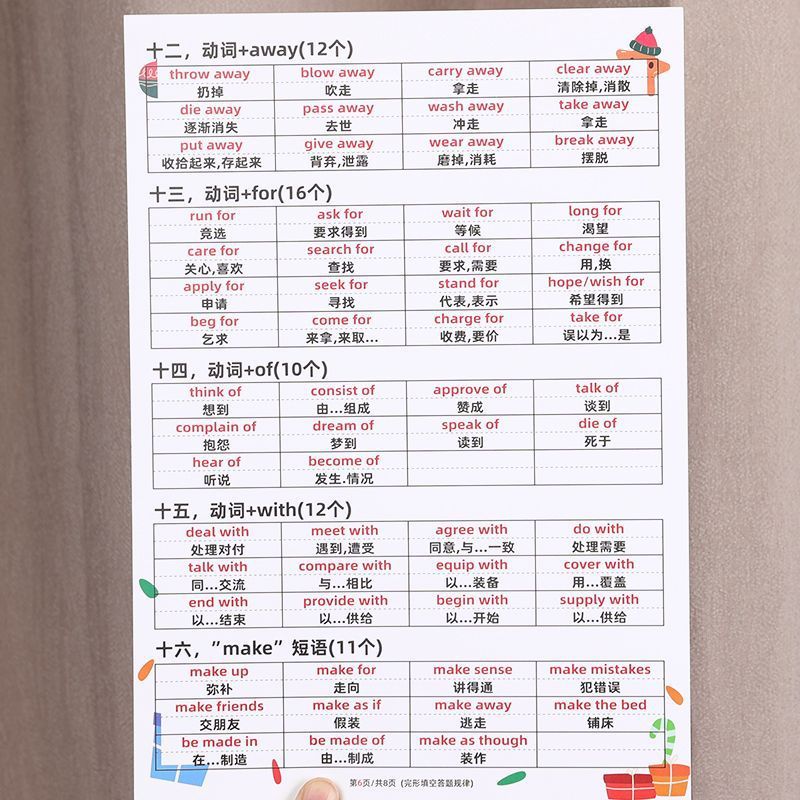 十二，动词+away(12个)
throw away blow away carry away clear away
扔掉 吹走 拿走 清除掉,消散
die away pass away wash away take away
逐渐消失 去世 冲走 拿走
put away give away wear away break away
收拾起来,存起来 背弃,泄露 磨掉,消耗 摆脱
十三，动词+for(16个)
run for ask for wait for long for
竞选 要求得到 等候 渴望
care for search for call for change for
关心,喜欢 查找 要求,需要 用,换
apply for seek for stand for hope/wish for
申请 寻找 代表,表示 希望得到
beg for come for charge for take for
乞求 来拿,来取... 收费,要价 误以为...是
十四，动词+of(10个)
think of consist of approve of talk of
想到 由...组成 赞成 谈到
complain of dream of speak of die of
抱怨 梦到 读到 死于
hear of become of
听说 发生.情况
十五，动词+with(12个)
deal with meet with agree with do with
处理对付 遇到,遭受 同意,与...一致 处理需要
talk with compare with equip with cover with
同...交流 与...相比 以...装备 用...覆盖
end with provide with begin with supply with
以...结束 以...供给 以...开始 以...供给
十六，"make" 短语(11个)
make up make for make sense make mistakes
弥补 走向 讲得通 犯错误
make friends make as if make away make the bed
交朋友 假装 逃走 铺床
be made in be made of make as though
在...制造 由...制成 装作
第6页/共8页 (完形填空答题规律)